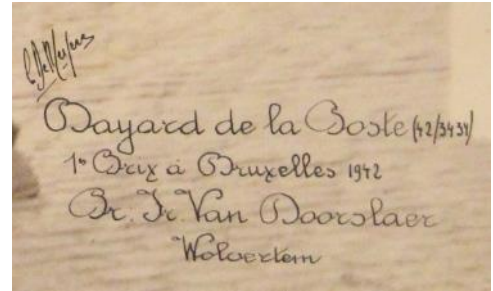 Bayard de la Poste (42/3434)
1º Prix à Bruxelles 1942
Van Doorslaer
Wolvertem